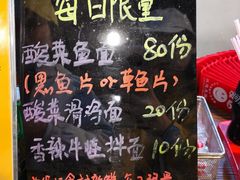 每日限量
酸菜鱼面 80份
(黑鱼片 or 草鱼片)
酸菜滑鸡面 20份
香辣牛蛙拌面 10份